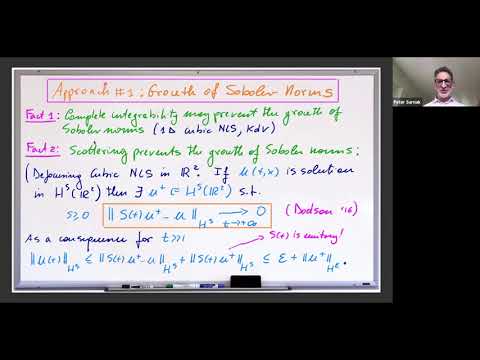 Approach #1: Growth of Sobolev Norms
Fact 1: Complete integrability may prevent the growth of
Sobolev norms (1D cubic NLS, KdV)
Fact 2: Scattering prevents the growth of Sobolev norms:
(Defocusing Cubic NLS in ℝ². If u(t,x) is solution
in H^s(ℝ²) then ∃ u⁺ ∈ H^s(ℝ²) s.t.
s≥0 ‖S(t)u⁺-u‖_{H^s} ⟶_{t→+∞} 0 (Dodson '16)
As a consequence for t≫1 S(t) is unitary!
‖u(t)‖_{H^s} ≤ ‖S(t)u⁺-u‖_{H^s} + ‖S(t)u⁺‖_{H^s} ≤ ε + ‖u⁺‖_{H^s}.
Peter Sarnak